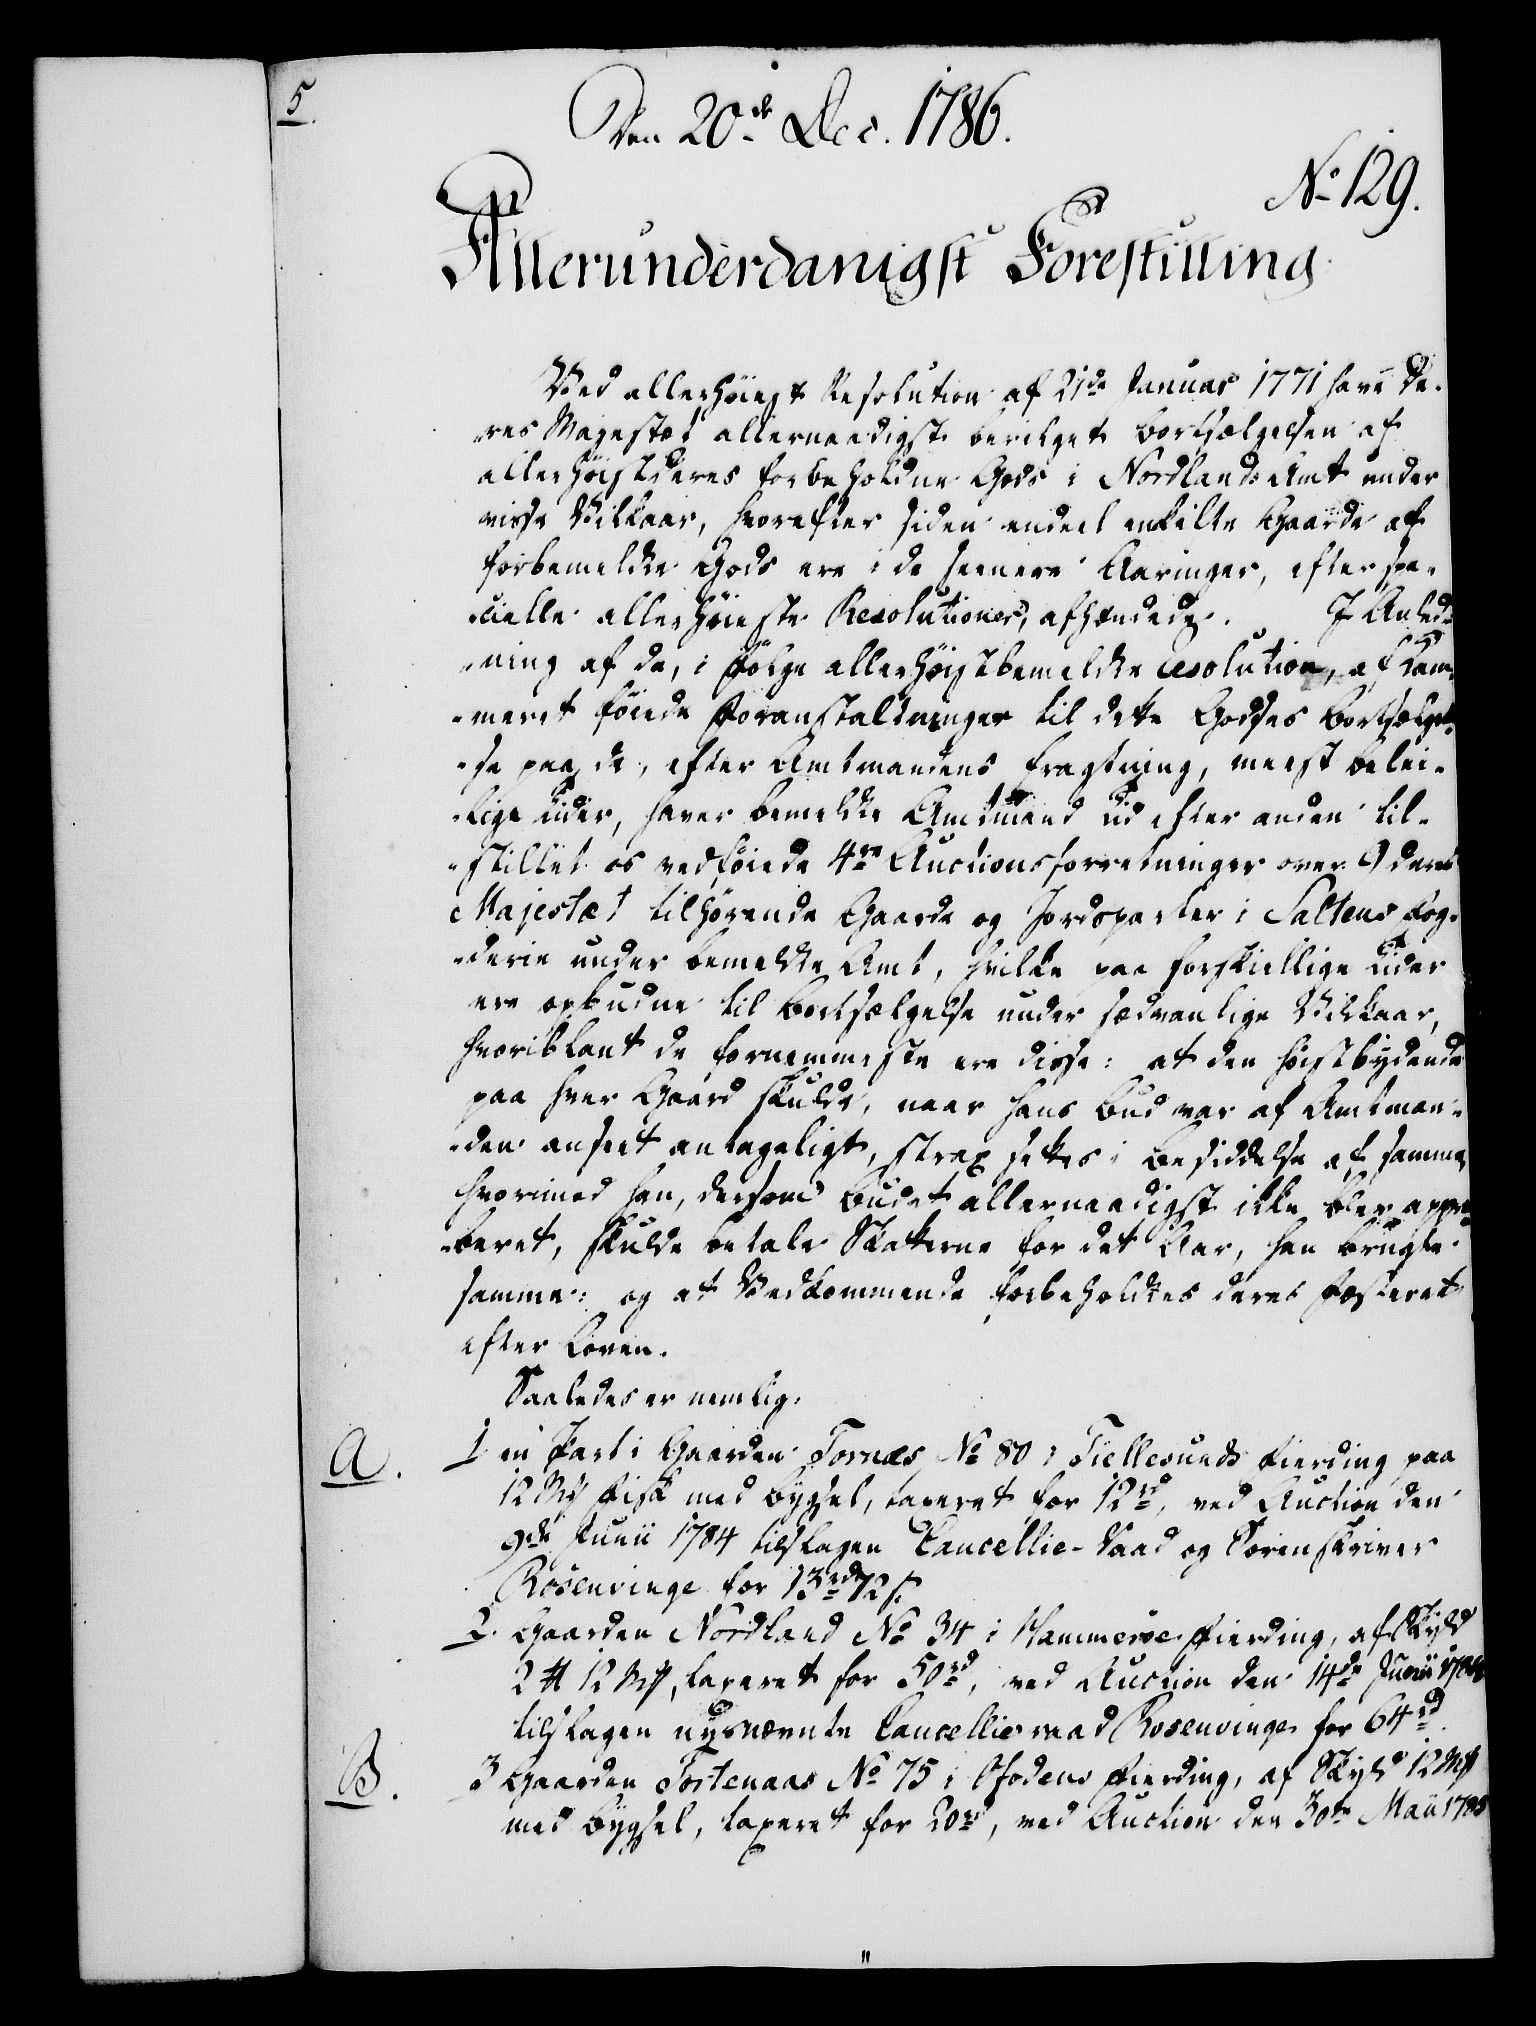 5.
Den 20de Dec. 1786.
No 129.
Allerunderdanigst Forestilling
Ved allerhöiest Resolution af 21de Januar 1771 have De-
-res Majestæt allernaadigst bevilget Bortsælgelsen af
allerhöistderes forbeholdne Gods i Nordlands Amt under
visse Vilkaar, hvorefter siden endeel enkelte Gaarde af
forbemeldte Gods ere i de seenere Aaringer, efter spe-
-cielle allerhöieste Resolutioner, afhændede. I Anled-
-ning af de, i Fölge allerhöistbemeldte Resolution, af Kam-
-meret föiede Foranstaltninger til dette Godses Bortsælgel-
-se paa de, efter Amtmandens Fragtning, meest belei-
-lige Tider, haver bemeldte Amtmand Tid efter anden til-
-stillet os vedföiede 4re Auctionsforretninger over 9 Deres
Majestæt tilhörende Gaarde og Jordsparter i Saltens Fog-
-derie under bemeldte Amt, hvilke paa forskiellige Tider
ere opbudne til Bortsælgelse under sædvanlige Vilkaar,
hvoriblant de fornemmeste ere disse: at den höistbydende
paa hver Gaard skulde, naar hans Bud var af Amtman-
-den anseet antageligt, strax settes i Besiddelse af samme,
hvorimod han, dersom Budet allernaadigst ikke blev appro-
-beret, skulde betale Skatterne for det Aar, han brugte
samme: og at Vedkommende forbeholdtes deres Fæsteret
efter Loven.
Saaledes er nemlig:
A. 1 en Part i Gaarden Tornæs No 80 i Fiellesunds Fierding paa
12 Mk Fisk med Bygsel, taxeret for 12rd, ved Auction den
9de Junii 1784 tilslagen Cancellie-Raad og Sorenskriver
Rosenvinge for 13rd 72 s.
2. Gaarden Nordland No 34 i Hammeröe Fierding, af Skyld
2 # 12 Mk, taxeret for 50rd, ved Auction den 14de Junii 1784
tilslagen nysnævnte Cancellieraad Rosenvinge for 64rd.
B. 3 Gaarden Tortenaas No 75 i Ofodens Fierding, af Skyld 12 Mk
med Bygsel, taxeret for 20rd, ved Auction den 30te Maii 1785